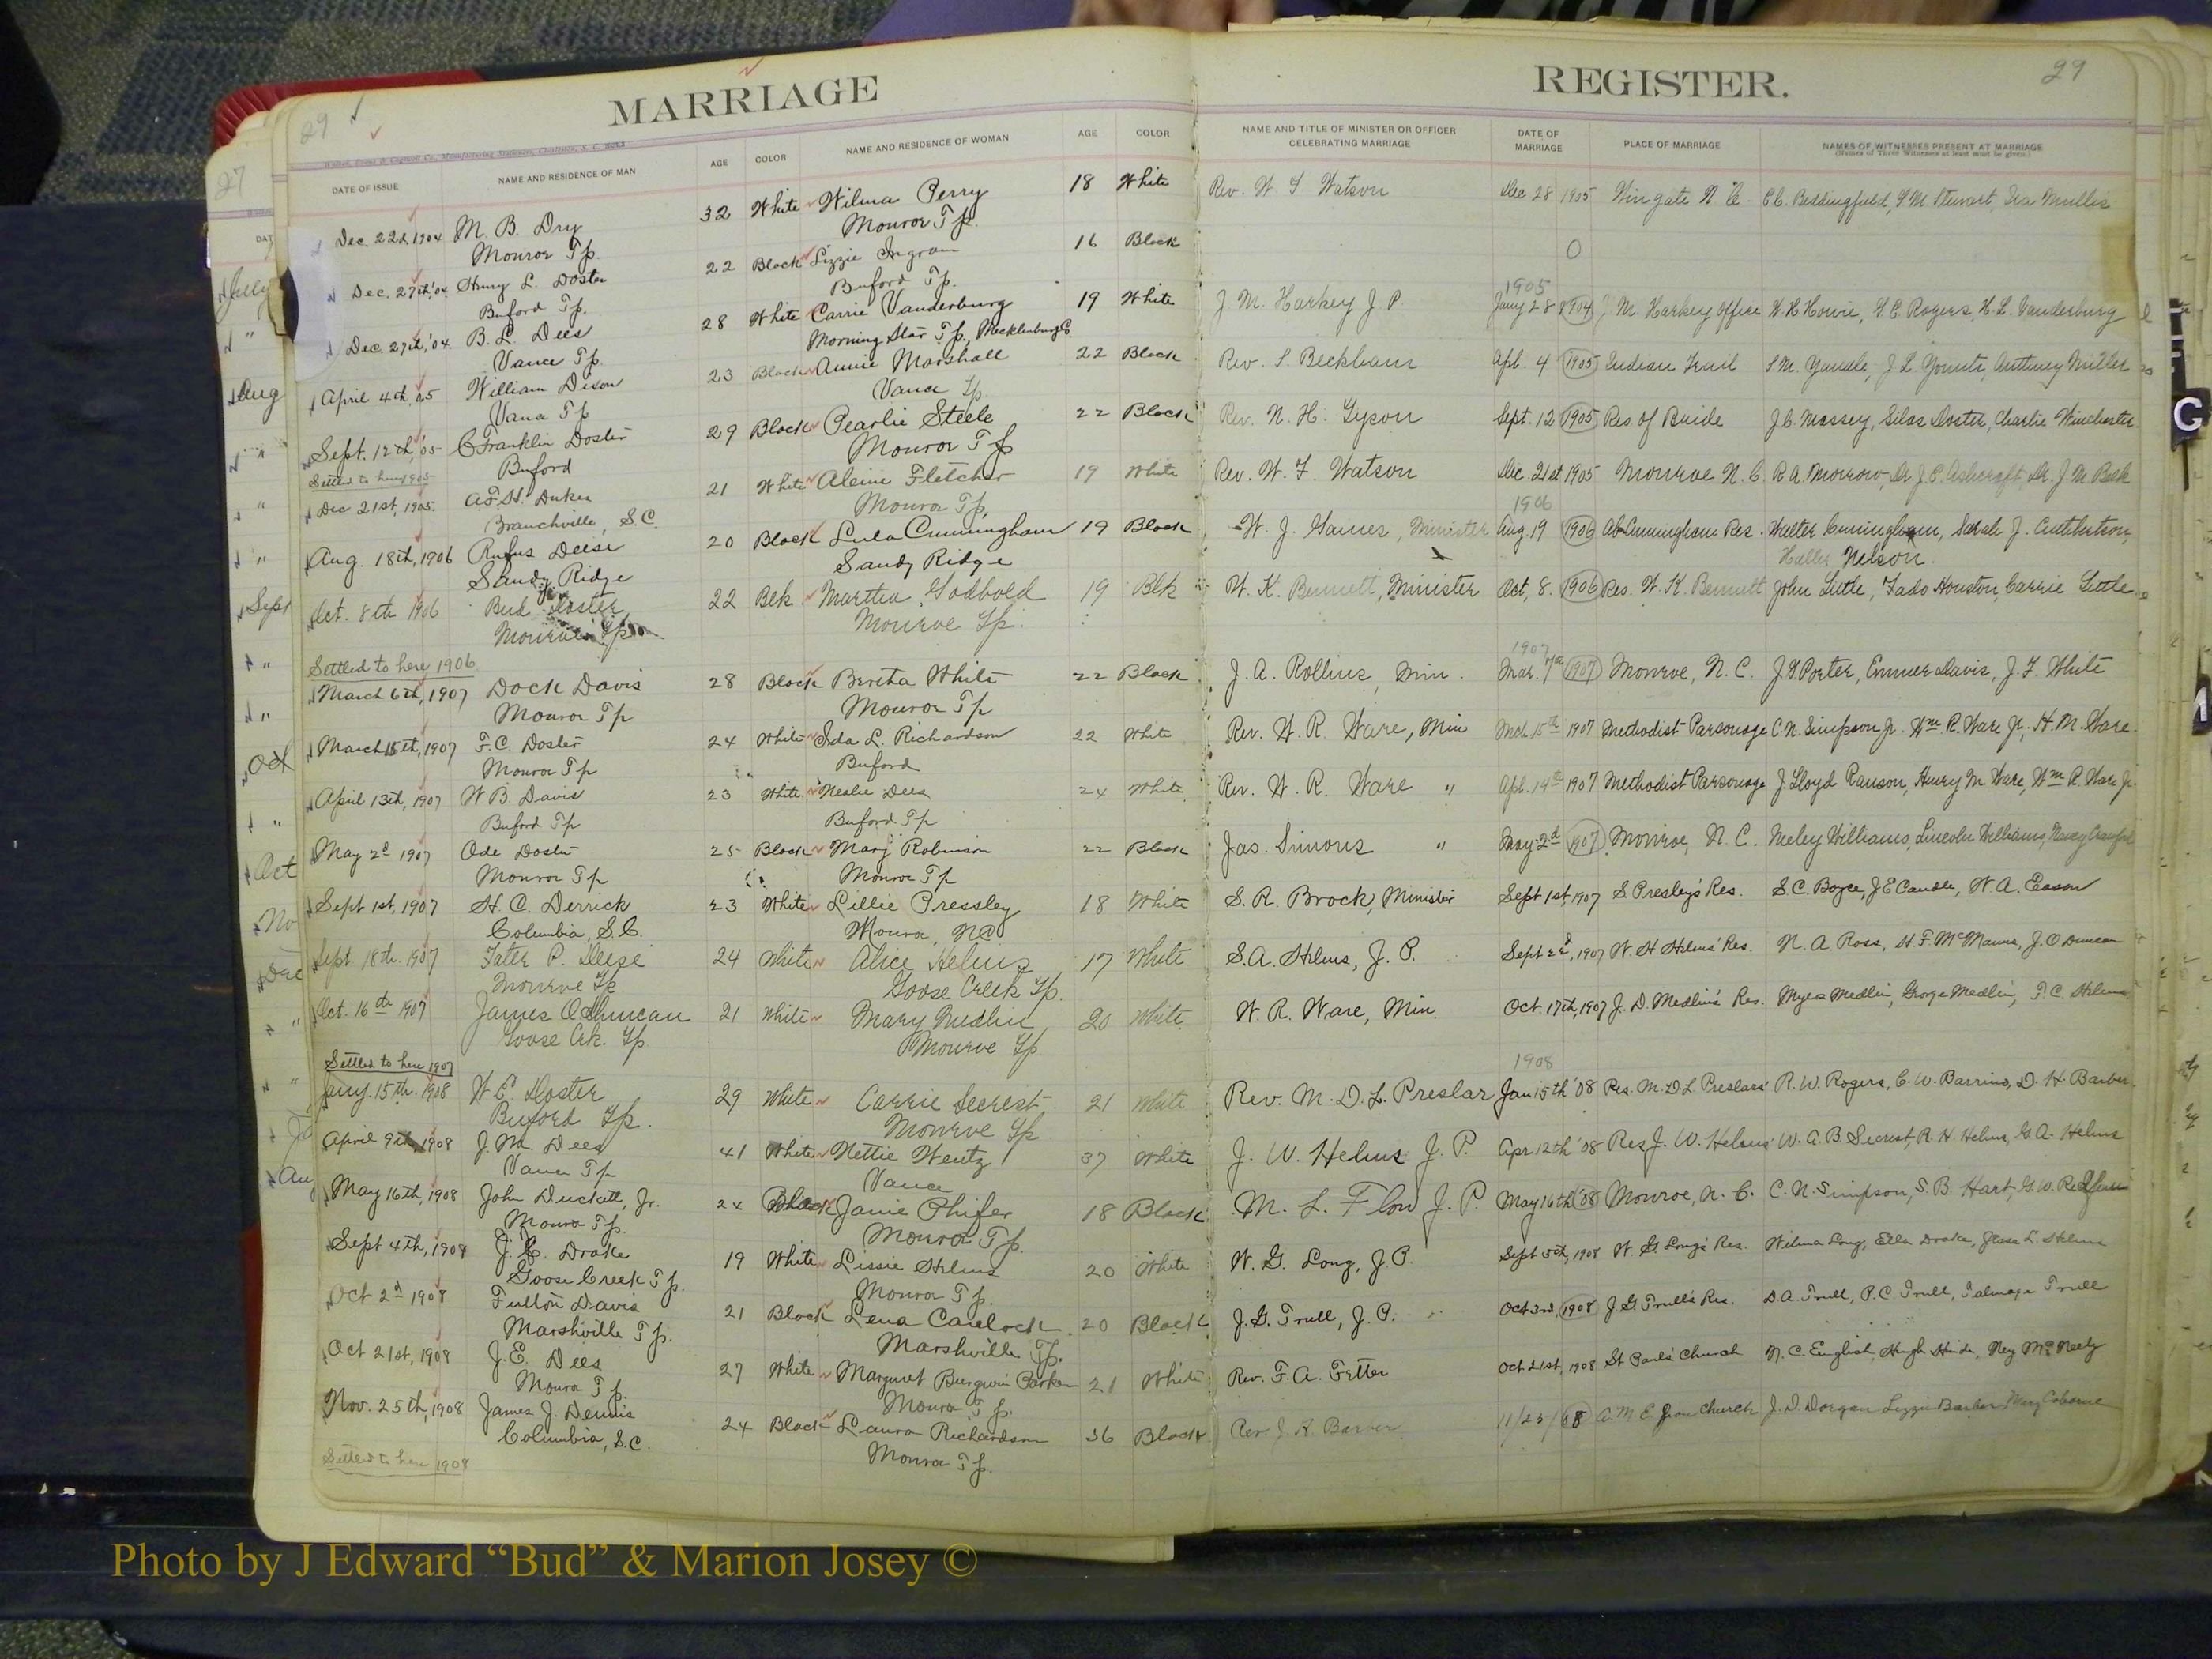 29
MARRIAGE
REGISTER.
29
DATE OF ISSUE NAME AND RESIDENCE OF MAN AGE COLOR NAME AND RESIDENCE OF WOMAN AGE COLOR NAME AND TITLE OF MINISTER OR OFFICER CELEBRATING MARRIAGE DATE OF MARRIAGE PLACE OF MARRIAGE NAMES OF WITNESSES PRESENT AT MARRIAGE
(Names of Three Witnesses at least must be given.)
Dec. 22d, 1904 M. B. Dry 32 White Wilma Perry 18 White Rev. W. F Watson Dec 28 1905 Wingate N C. C.C. Beddingfield, Ira Mullis
Monroe Tp. Monroe Tp.
Dec. 27th, '04 Henry L. Doster 22 Black Lizzie Ingram 16 Black 0
Buford Tp. Buford Tp.
1905
Dec. 27th, '04. B. L. Dees 28 White Carrie Vanderburg 19 White J. M. Harkey J P. Jany 28 1904 J M. Harkey office W. H Howie, H. C. Rogers, H. L. Vanderburg
Vance Tp. Morning Star Tp., Mecklenburg Co
April 4th, 05 William Dixon 23 Black Annie Marshall 22 Black Rev. S. Beckham Apl. 4 1905 Indian Trail S M. Yandle, J L. Younts,
Vance Tp Vance Tp.
Sept. 12th, '05 C Franklin Doster 29 Black Pearlie Steele 22 Black Rev. N. H. Tyson Sept. 12 1905 Res of Bride J. C. Massey, Silas Doster, Charlie Winchester
Buford Monroe Tp
Settled to here 1905
Dec 21st, 1905. A.F.H. Dukes 21 White Aleine Fletcher 19 White Rev. W. F. Watson Dec. 21st 1905 Monroe N. C. R A. Morrow, Dr J. E. Ashcraft, Dr. J. M. Belk
Branchville, S.C. Monroe Tp,
1906
Aug. 18th, 1906 Rufus Deese 20 Black Lula Cunningham 19 Black W. J. Gaines, Minister Aug. 19 1906 Cunningham Res. Walter Cuningham, Sarah J. Cuthbertson,
Sandy Ridge Sandy Ridge Nelson.
Oct. 8th 1906 Bud Doster 22 Blk Martha Godbold 19 Blk W. K. Bennett, Minister Oct, 8. 1906 Res. W. K. Bennett John Little, Houston, Carrie Little
Monroe Tp Monroe Tp.
Settled to here 1906
1907
March 6th, 1907 Dock Davis 28 Black Bertha White 22 Black J. A. Rollins, Min. Mar. 7th 1907 Monroe, N. C. Porter, Davis, J. F. White
Monroe Tp Monroe Tp
March 15th, 1907 F. C. Doster 24 White Ida L. Richardson 22 White Rev. W. R. Ware, Min Mch. 15th 1907 Methodist Parsonage C. N. Simpson Jr. Wm. R. Ware Jr, H. M. Ware.
Monroe Tp Buford
April 13th, 1907 W B. Davis 23 White Dees 24 White Rev. W. R. Ware " Apl. 14th 1907 Methodist Parsonage J. Lloyd Ranson, Henry M Ware, Wm R. Ware Jr.
Buford Tp Buford Tp
May 2d 1907 Ode Doster 25 Black Mary Robinson 22 Black Jas. Simons " May 2d 1907 Monroe, N. C. Neeley Williams, Lincoln Williams,
Monroe Tp Monroe Tp
Sept 1st, 1907 H. C. Derrick 23 White Lillie Pressley 18 White S. R. Brock, Minister Sept 1st, 1907 S. Presley's Res. S. C. Boyce, J E Caudle, W. A. Eason
Columbia, S.C. Monroe, NC
Sept 18th. 1907 Tater P. Deese 24 White Alice Helms 17 White S. A. Helms, J. P. Sept 22d, 1907 W. H Helms' Res. N. A Ross, H. F. McManus, J. O Duncan
Monroe Tp Goose Creek Tp.
Oct. 16th 1907 James O. Duncan 21 White Mary Medlin 20 White W. R. Ware, Min. Oct 17th, 1907 J. D. Medlin's Res. Myers Medlin, George Medlin, P. C. Helms
Goose Crk. Tp Monroe Tp
Settled to here 1907
1908
Jany. 15th. 1908 W. C. Doster 29 White Carrie Secrest 21 White Rev. M. D. L. Preslar Jan 15th '08 Res. M. D L Preslars' R. W. Rogers, C. W. Barrino, D. H. Barber.
Buford Tp. Monroe Tp
April 9th 1908 J. M. Dees 41 White Nettie Wentz 37 White J. W. Helms J. P. Apr 12th '08 Res J. W. Helms' W. A. B. Secrest, R. H. Helms, G. A. Helms
Vance Tp Vance
May 16th, 1908 John Duckett, Jr. 24 Black Janie Phifer 18 Black M. L. Flow J. P. May 16th '08 Monroe, N. C. C. N. Simpson, S. B. Hart, G. W. Redfearn
Monroe Tp. Monroe Tp.
Sept 4th, 1908 J. C. Drake 19 White Lissie Helms 20 White W. G. Long, J. P. Sept 5th, 1908 W. G Long's Res. Wilma Long, Ella Drake, Jesse L. Helms
Goose Creek Tp. Monroe Tp.
Oct 2d 1908 Fulton Davis 21 Black Lena Carelock 20 Black J. G. Trull, J. P. Oct 3rd, 1908 J. G Trull's Res. D. A. Trull, P. C. Trull, Talmage Trull
Marshville Tp. Marshville Tp.
Oct 21st, 1908 J. E. Dees 27 White Margaret Burgwin Parker 21 White Rev. F. A. Fetter Oct 21st, 1908 St Paul's Church N. C. English, Hugh Hinde, Ney McNeely
Monroe Tp. Monroe Tp.
Nov. 25th, 1908 James J. Dennis 24 Black Laura Richardson 36 Black Rev J. A Barber 11/25/08 A. M E Zion Church J. D. Dorgan Lizzie Barber Mary Osborne
Columbia, S.C. Monroe Tp.
Settled to here 1908
27
July
Aug
Sept
Oct
Oct
Nov
Dec
Photo by J Edward “Bud” & Marion Josey ©